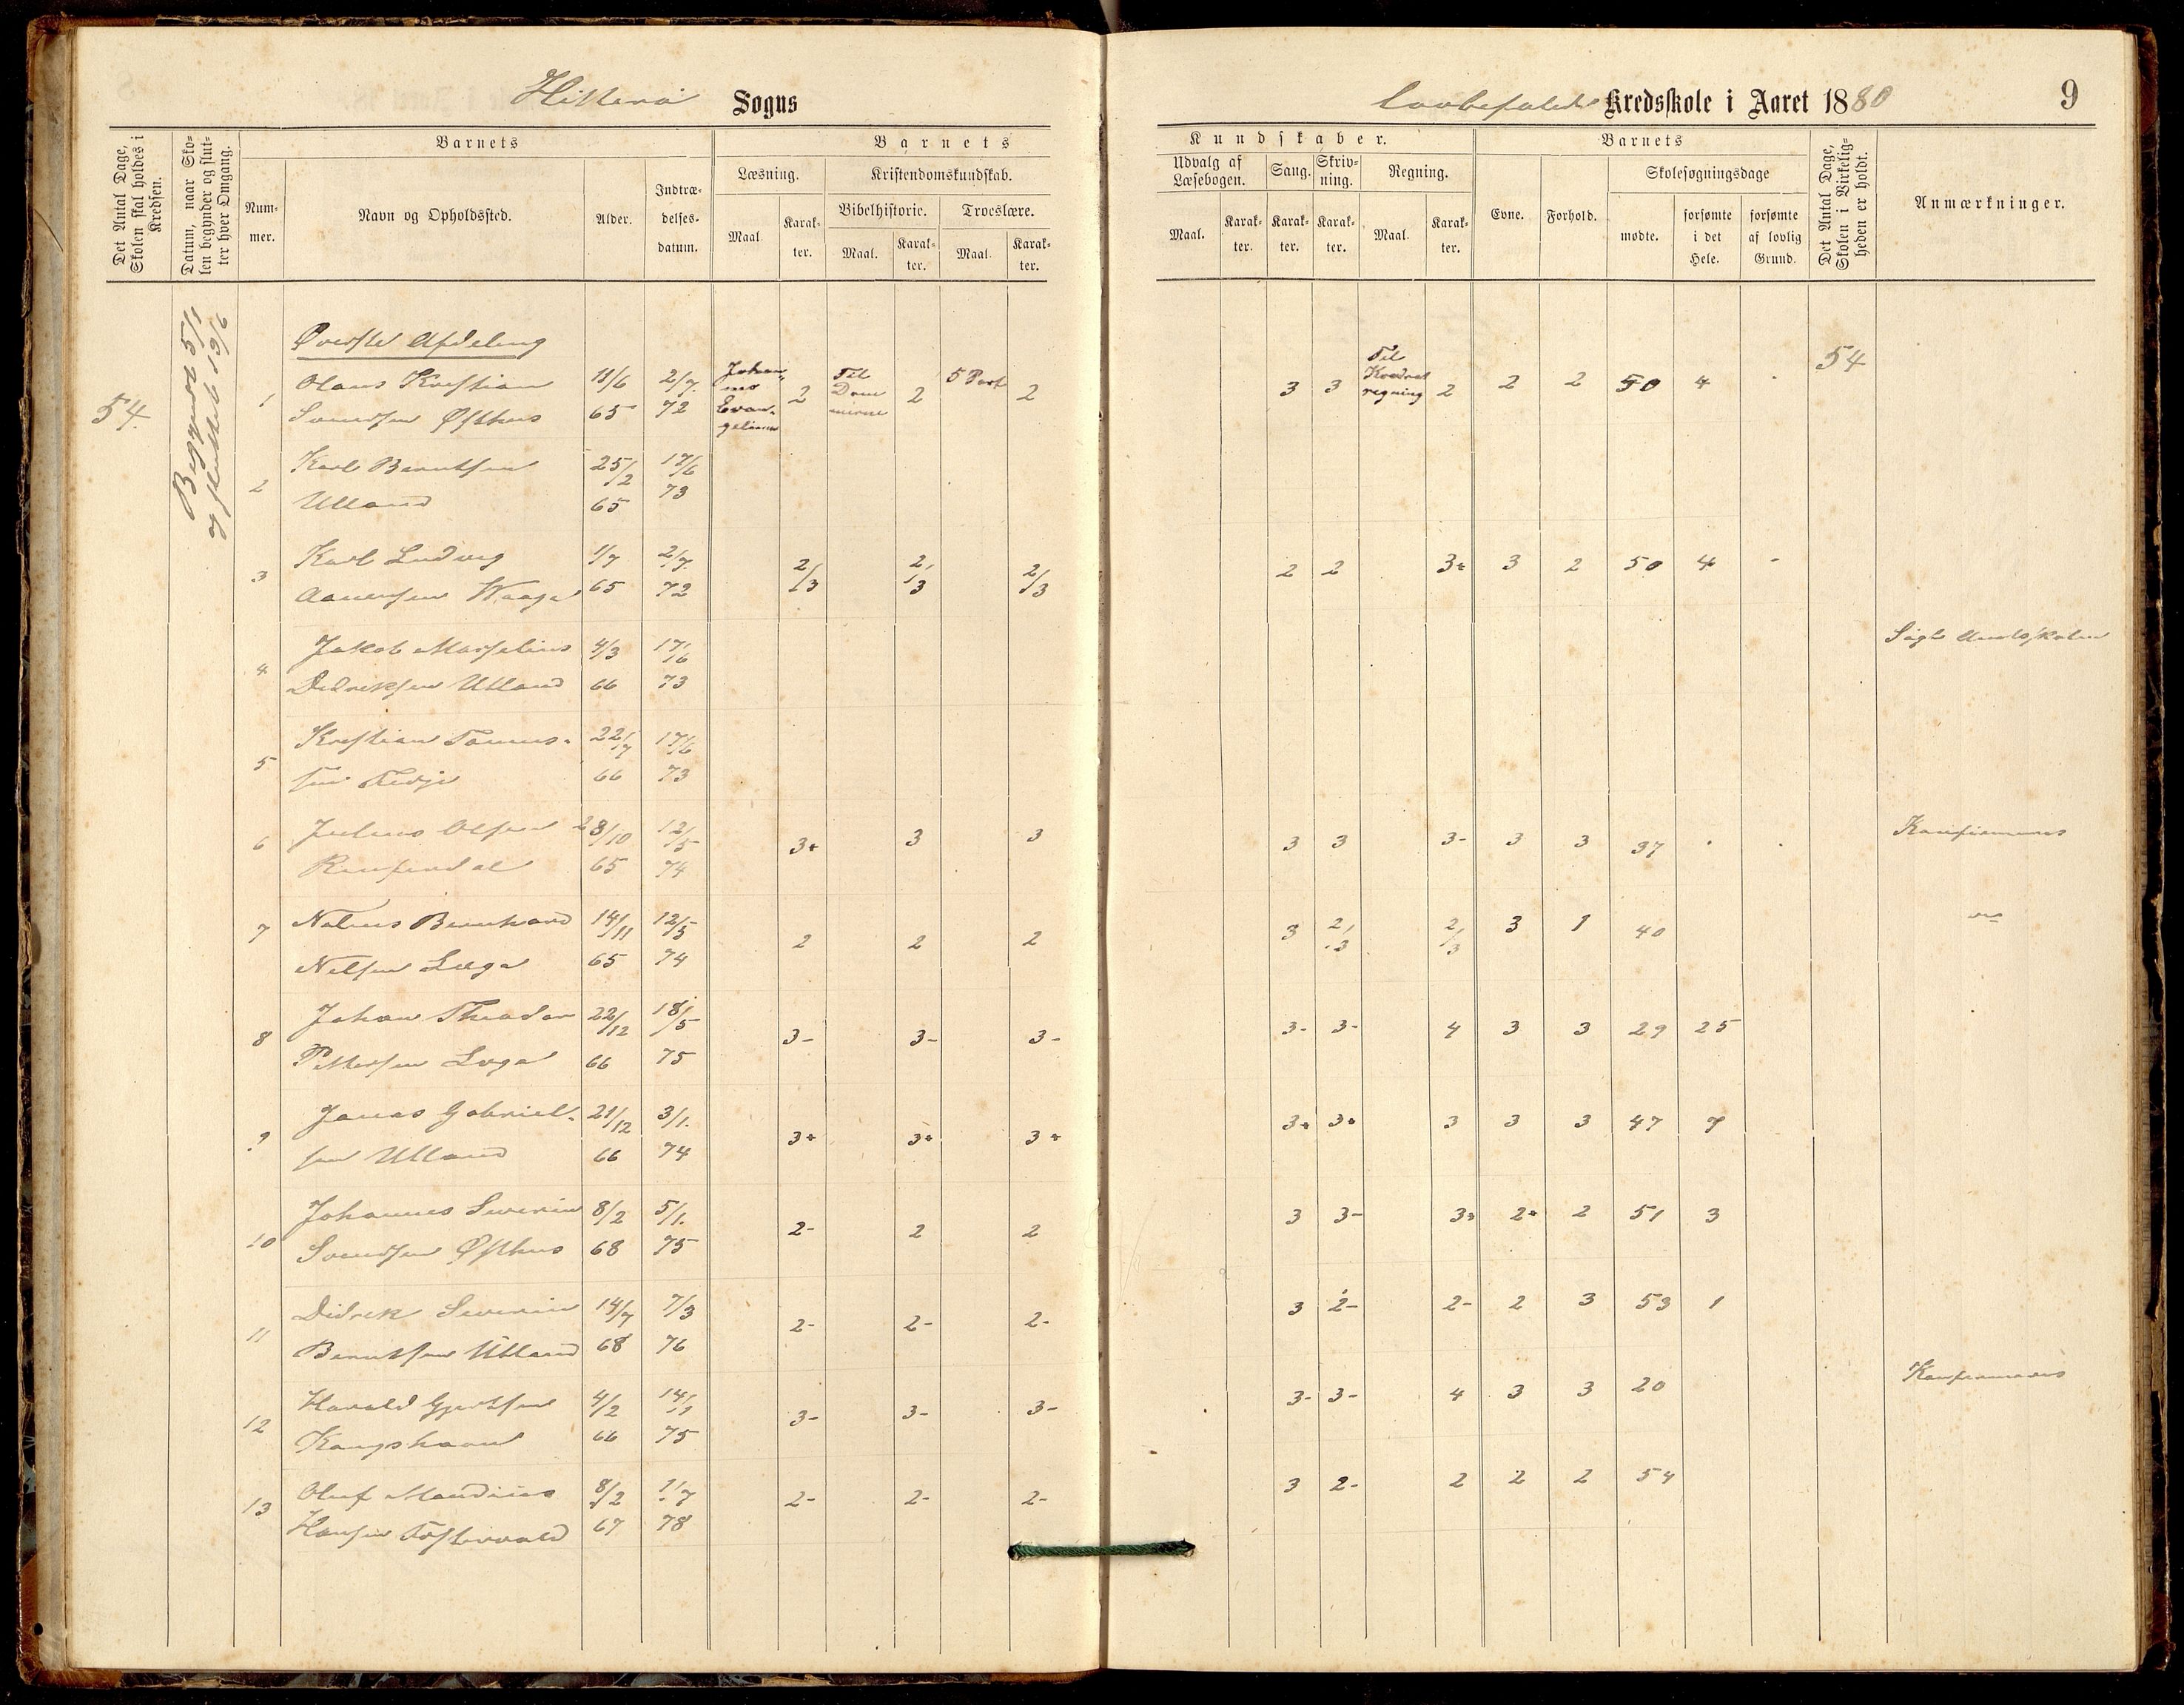 Hitterø Sogns
lovbefalede Kredsskole i Aaret 1880
9
Det Antal Dage, Skolen skal holdes i Kredsen.
Datum, naar Skolen begynder og slutter hver Omgang.
Barnets
Nummer.
Navn og Opholdssted.
Alder.
Indtrædelsesdatum.
Barnets
Læsning.
Kristendomskundskab.
Maal.
Karakter.
Bibelhistorie.
Troeslære.
Maal.
Karakter.
Maal.
Karakter.
Kundskaber.
Udvalg af Læsebogen.
Sang.
Skrivning.
Regning.
Maal.
Karakter.
Karakter.
Karakter.
Maal.
Karakter.
Barnets
Evne.
Forhold.
Skolesøgningsdage
mødte.
forsømte i det Hele.
forsømte af lovlig Grund.
Det Antal Dage, Skolen i Virkeligheden er holdt.
Anmærkninger.
54.
Begyndt 5/1
og sluttet 19/6
Øverste Afdeling
54
1 Olaus Kristian 11/6 2/7. Johannes Evangelium 2 Til Dommerne 2 5 Part 2 3 3 Til Kvadratregning 2 2 2 50 4
Svendsen Østhus 65 72
2 Karl Berntsen 25/2 17/6
Utland 65 73
3 Karl Ludvig 1/7 2/7. 2/3 2/3 2/3 2 2 3+ 3 2 50 4 -
Aanensen Waage 65 72
4 Jakob Marselius 4/3 17/6 Søgte Amtsskolen
Didreksen Utland 66 73
5 Kristian Tønnes- 22/7 17/6
sen 66 73
6 Julius Olsen 28/10 12/5 3+ 3 3 3 3 3- 3 3 37 Konfirmeres
65 74
7 Nelius Bernhard 14/11 12/5 2 2 2 3 2/3 2/3 3 1 40
Nilsen Løga 65 74
8 Johan Theodor 22/12 18/5 3- 3- 3- 3- 3- 4 3 3 29 25
Pettersen Løga 66 75
9 Jonas Gabriel- 21/12 3/1. 3+ 3+ 3+ 3+ 3+ 3 3 3 47 7
sen Utland 66 74
10 Johannes Severin 8/2 5/1. 2- 2 2 3 3- 3+ 2+ 2 51 3
Svendsen Østhus 68 75
11 Didrek Severin 14/7 7/3 2- 2- 2- 3 2- 2- 2 3 53 1
Berntsen Utland 68 76
12 Harald Gjertsen 4/2 14/1 3- 3- 3- 3- 3- 4 3 3 20 Konfirmeres
Kongshavn 66 75
13 Oluf Maudius 8/2 1/7 2- 2- 2- 3 2- 2 2 2 54
Hansen 67 78